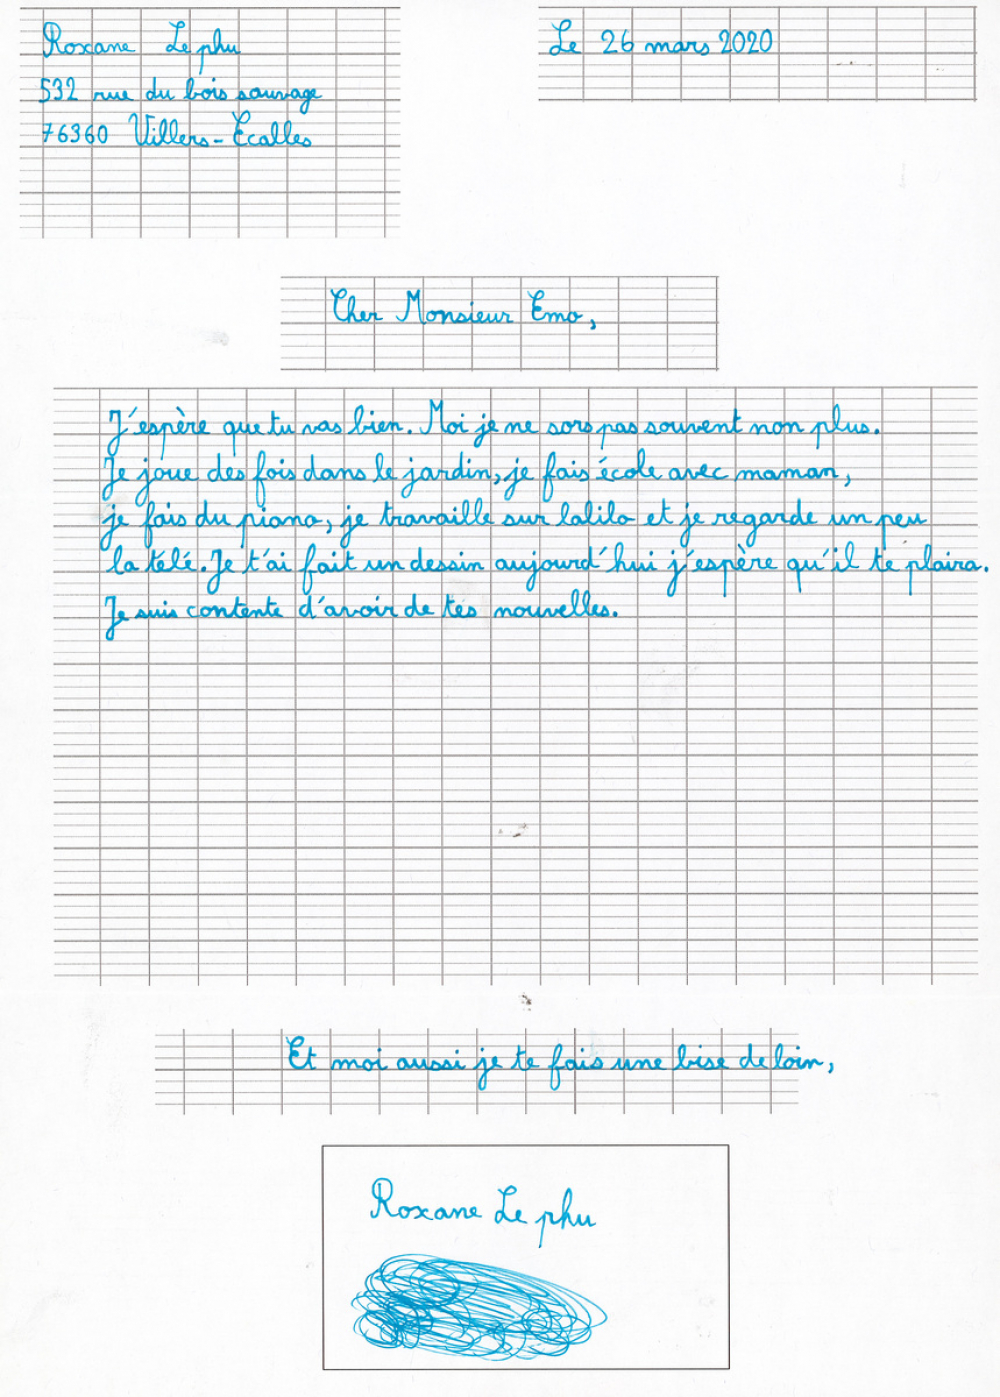 Roxane Le phu
Le 26 mars 2020
532 rue du bois sauvage
76360 Villers-Ecalles
Cher Monsieur Emo,
J'espère que tu vas bien. Moi je ne sors pas souvent non plus.
Je joue des fois dans le jardin, je fais école avec maman,
je fais du piano, je travaille sur lalilo et je regarde un peu
la télé. Je t'ai fait un dessin aujourd'hui j'espère qu'il te plaira.
Je suis contente d'avoir de tes nouvelles.
Et moi aussi je te fais une bise de loin,
Roxane Le phu